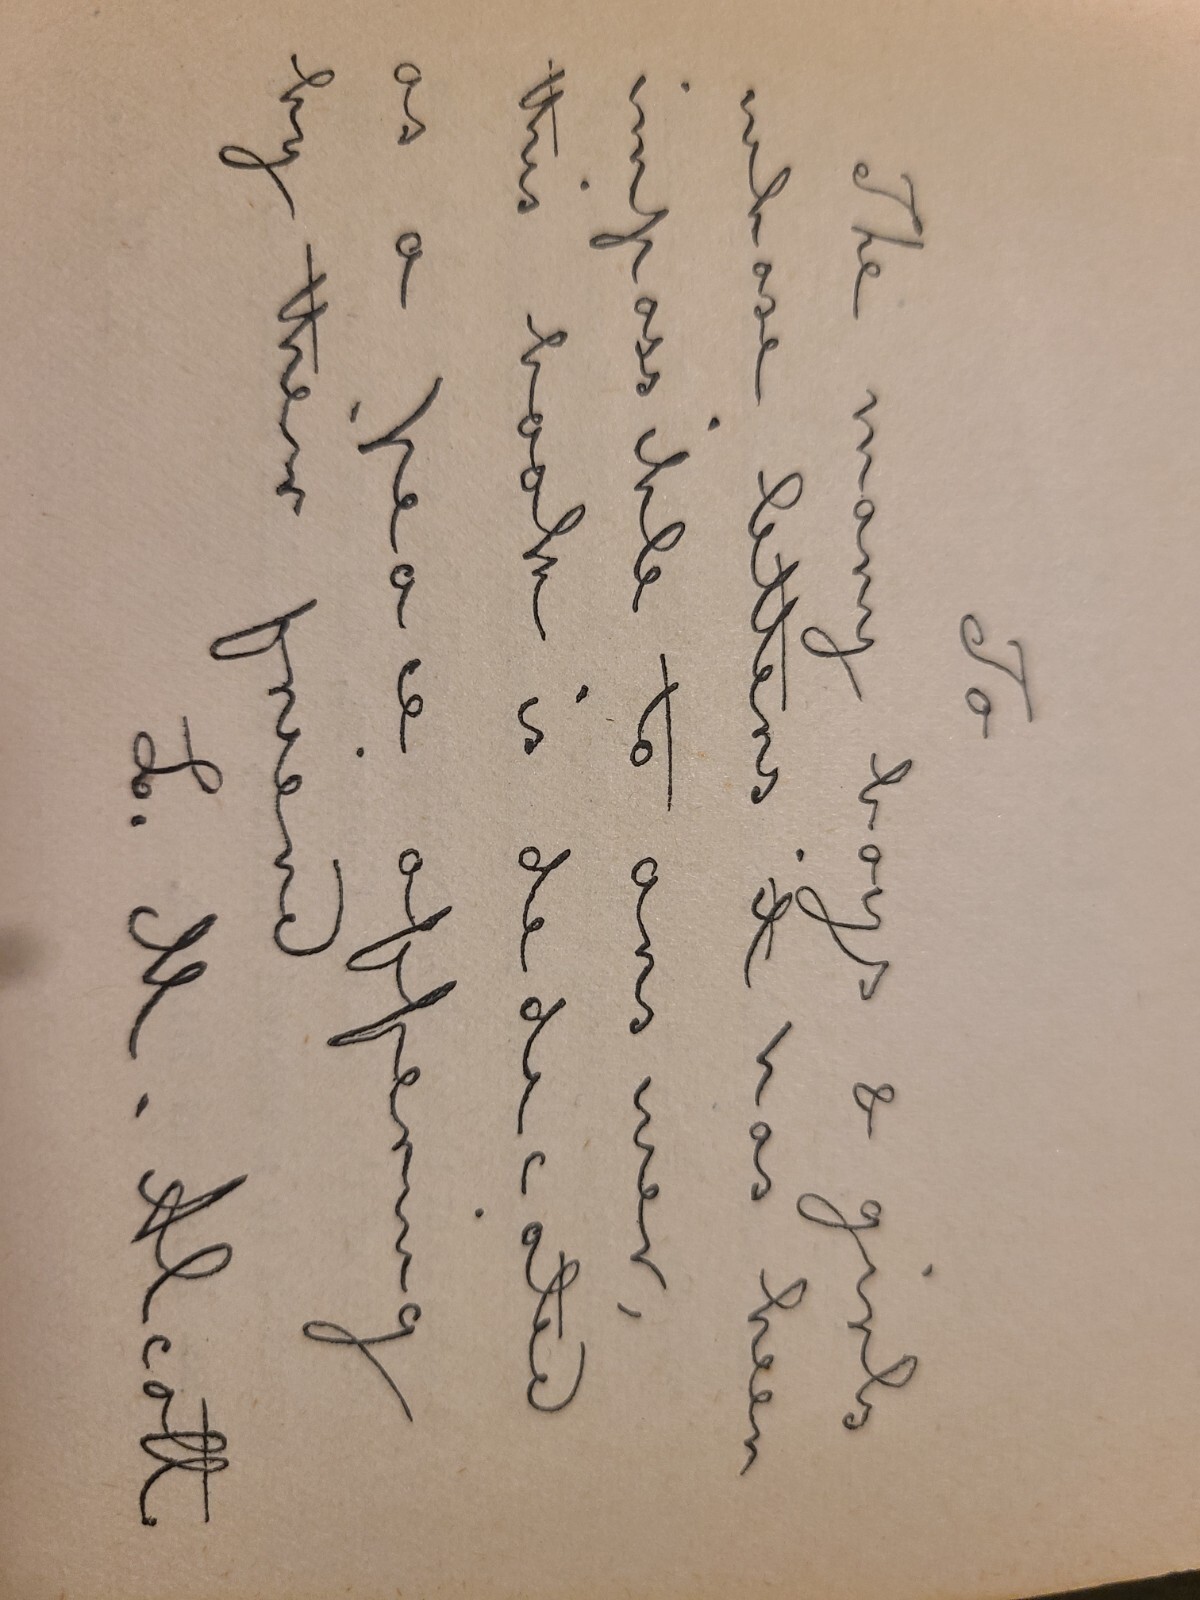 To
The many boys & girls
whose letters it has been
impossible to answer,
this book is dedicated
as a peace offering
by their friend
L. M. Alcott.